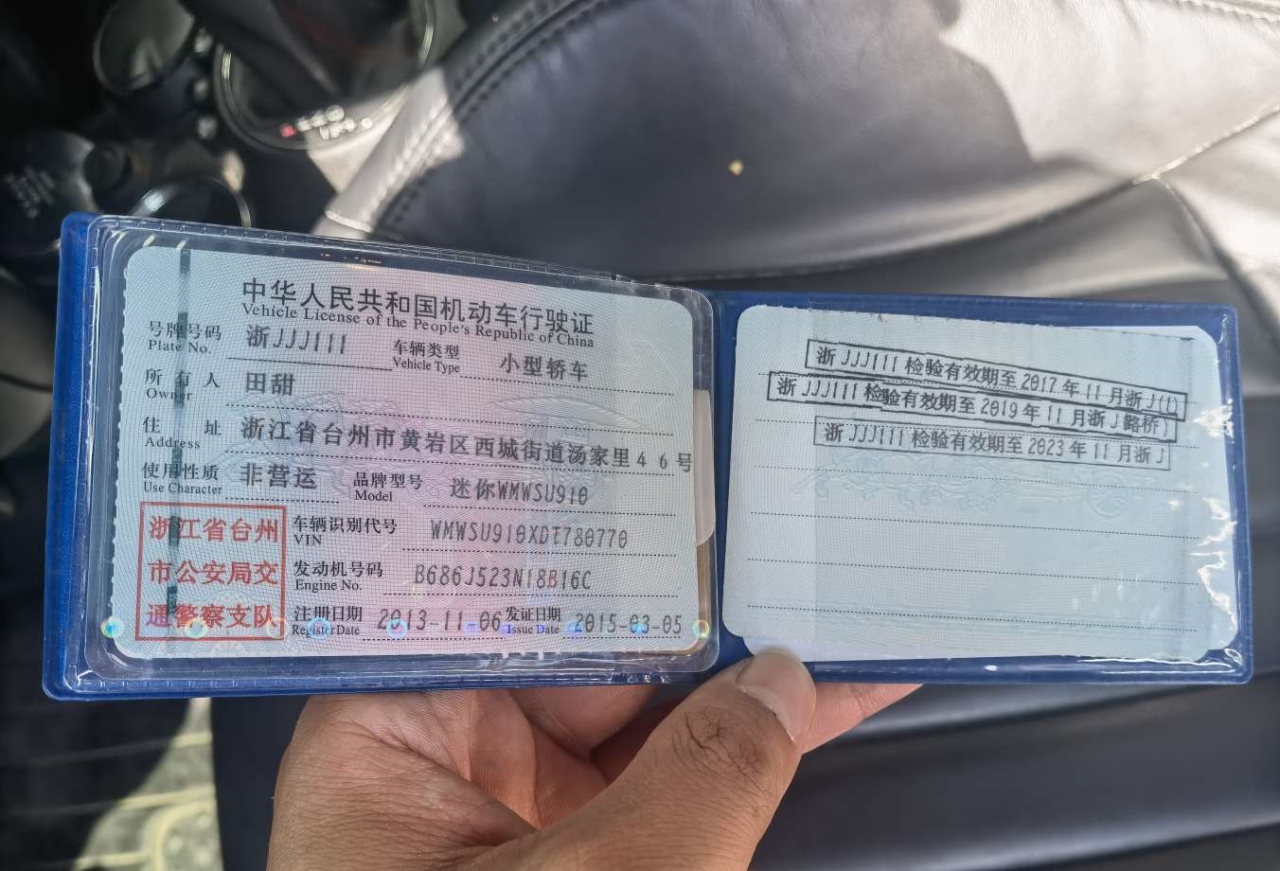 中华人民共和国机动车行驶证
Vehicle License of the People's Republic of China
号牌号码 浙JJJ111 车辆类型 小型轿车
Plate No. Vehicle Type
所有人 田甜
Owner
住址 浙江省台州市黄岩区西城街道汤家里46号
Address
使用性质 非营运 品牌型号 迷你WMWSU910
Use Character Model
浙江省台州
市公安局交
通警察支队
车辆识别代号 WMWSU910XDT780770
VIN
发动机号码 B686J523N18B16C
Engine No.
注册日期 2013-11-06 发证日期 2015-03-05
Register Date Issue Date
浙JJJ111检验有效期至2017年11月浙J(t)
浙JJJ111检验有效期至2019年11月浙J路桥)
浙JJJ111检验有效期至2023年11月浙J